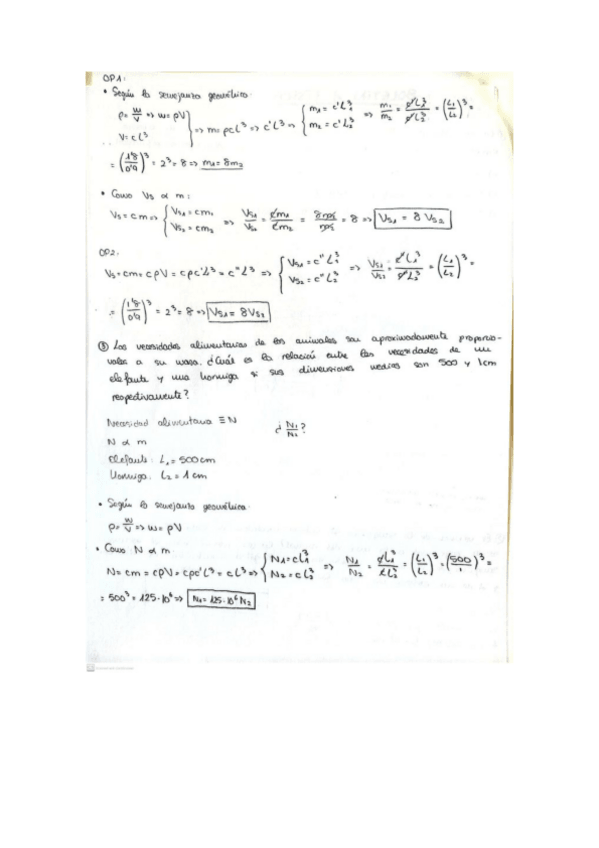 OP1:
• Según la semejanza geométrica:
ρ = m/V => m = ρV
V = cL³
} => m = ρcL³ => c'L³ => { m₁ = c'L₁³ => m₁/m₂ = c'L₁³/c'L₂³ = (L₁/L₂)³ =
m₂ = c'L₂³
= (1'8/0'9)³ = 2³ = 8 => m₁ = 8m₂
• Como Vs α m:
Vs = cm => { Vs₁ = cm₁ => Vs₁/Vs₂ = cm₁/cm₂ = 8m₂/m₂ = 8 => Vs₁ = 8 Vs₂
Vs₂ = cm₂
OP2.
Vs = cm = cρV = cρc'L³ = c''L³ => { Vs₁ = c''L₁³ => Vs₁/Vs₂ = c''L₁³/c''L₂³ = (L₁/L₂)³ =
Vs₂ = c''L₂³
= (1'8/0'9)³ = 2³ = 8 => Vs₁ = 8Vs₂
③ Las necesidades alimentarias de los animales son aproximadamente proporcio-
nales a su masa. ¿Cuál es la relación entre las necesidades de un
elefante y una hormiga si sus dimensiones medias son 500 y 1cm
respectivamente?
Necesidad alimentaria ≡ N
¿ N₁/N₂ ?
N α m
Elefante: L₁ = 500cm
Hormiga: L₂ = 1 cm
• Según la semejanza geométrica:
ρ = m/V => m = ρV
• Como N α m
N = cm = cρV = cρc'L³ = cL³ => { N₁ = cL₁³ => N₁/N₂ = cL₁³/cL₂³ = (L₁/L₂)³ = (500/1)³ =
N₂ = cL₂³
= 500³ = 125·10⁶ => N₁ = 125·10⁶ N₂